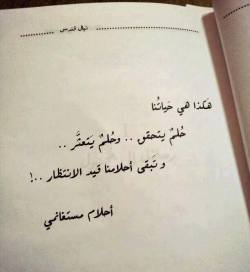 نبال قندس
هكذا هي حياتُنا
حُلمٌ يتحقق .. وحُلمٌ يَتعثَّر ..
و تَبقى أحلامنا قيد الانتظار ..!
أحلام مستغانمي